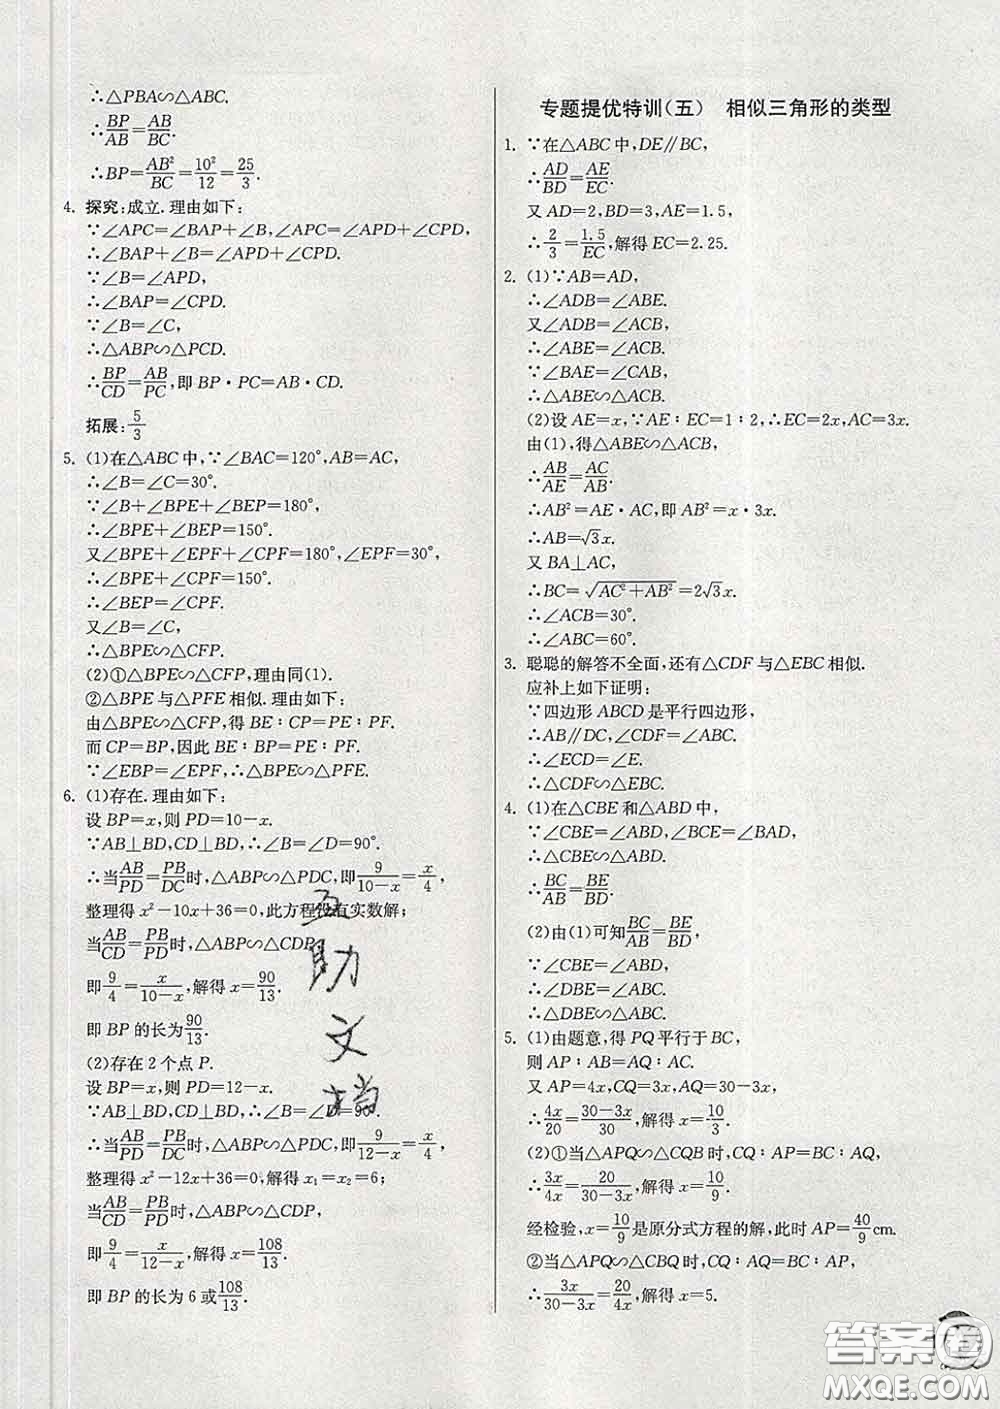 ∴△PBA∽△ABC.
∴BP/AB=AB/BC.
∴BP=AB²/BC=10²/12=25/3.
4. 探究:成立.理由如下:
∵∠APC=∠BAP+∠B,∠APC=∠APD+∠CPD,
∴∠BAP+∠B=∠APD+∠CPD.
∵∠B=∠APD,
∴∠BAP=∠CPD.
∵∠B=∠C,
∴△ABP∽△PCD.
∴BP/CD=AB/PC,即BP·PC=AB·CD.
拓展:5/3
5. (1)在△ABC中,∵∠BAC=120°,AB=AC,
∴∠B=∠C=30°.
∵∠B+∠BPE+∠BEP=180°,
∴∠BPE+∠BEP=150°.
又∠BPE+∠EPF+∠CPF=180°,∠EPF=30°,
∴∠BPE+∠CPF=150°.
∴∠BEP=∠CPF.
又∠B=∠C,
∴△BPE∽△CFP.
(2)①△BPE∽△CFP,理由同(1).
②△BPE与△PFE相似.理由如下:
由△BPE∽△CFP,得BE:CP=PE:PF.
而CP=BP,因此BE:BP=PE:PF.
∵∠EBP=∠EPF,∴△BPE∽△PFE.
6. (1)存在.理由如下:
设BP=x,则PD=10-x.
∵AB⊥BD,CD⊥BD,∴∠B=∠D=90°.
∴当AB/PD=PB/DC时,△ABP∽△PDC,即9/(10-x)=x/4,
整理得x²-10x+36=0,此方程没有实数解;
当AB/CD=PB/PD时,△ABP∽△CDP,
即9/4=x/(10-x),解得x=90/13.
即BP的长为90/13.
(2)存在2个点P.
设BP=x,则PD=12-x.
∵AB⊥BD,CD⊥BD,∴∠B=∠D=90°.
∴当AB/PD=PB/DC时,△ABP∽△PDC,即9/(12-x)=x/4,
整理得x²-12x+36=0,解得x₁=x₂=6;
当AB/CD=PB/PD时,△ABP∽△CDP,
即9/4=x/(12-x),解得x=108/13.
即BP的长为6或108/13.
互助文档
专题提优特训(五) 相似三角形的类型
1. ∵在△ABC中,DE∥BC,
∴AD/BD=AE/EC.
又AD=2,BD=3,AE=1.5,
∴2/3=1.5/EC,解得EC=2.25.
2. (1)∵AB=AD,
∴∠ADB=∠ABE.
又∠ADB=∠ACB,
∴∠ABE=∠ACB.
∵∠BAE=∠CAB,
∴△ABE∽△ACB.
(2)设AE=x,∵AE:EC=1:2,∴EC=2x,AC=3x.
由(1),得△ABE∽△ACB,
∴AB/AE=AC/AB.
∴AB²=AE·AC,即AB²=x·3x.
∴AB=√3x.
又BA⊥AC,
∴BC=√(AC²+AB²)=2√3x.
∴∠ACB=30°.
∴∠ABC=60°.
3. 聪聪的解答不全面,还有△CDF与△EBC相似.
应补上如下证明:
∵四边形ABCD是平行四边形,
∴AB∥DC,∠CDF=∠ABC.
∴∠ECD=∠E.
∴△CDF∽△EBC.
4. (1)在△CBE和△ABD中,
∵∠CBE=∠ABD,∠BCE=∠BAD,
∴△CBE∽△ABD.
∴BC/AB=BE/BD.
(2)由(1)可知BC/AB=BE/BD,
∵∠CBE=∠ABD,
∴∠DBE=∠ABC.
∴△DBE∽△ABC.
5. (1)由题意,得PQ平行于BC,
则AP:AB=AQ:AC.
又AP=4x,CQ=3x,AQ=30-3x,
∴4x/20=(30-3x)/30,解得x=10/3.
(2)①当△APQ∽△CQB时,CQ:AP=BC:AQ,
∴3x/4x=20/(30-3x),解得x=10/9.
经检验,x=10/9是原分式方程的解,此时AP=40/9cm.
②当△APQ∽△CBQ时,CQ:AQ=BC:AP,
∴3x/(30-3x)=20/4x,解得x=5.
答案圈
MXQE.COM